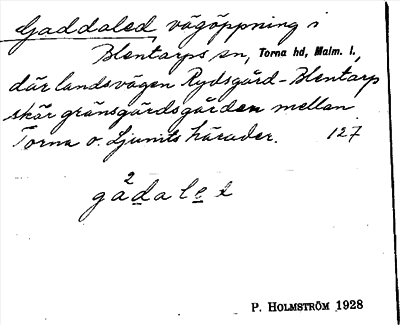 Gaddaled, vägöppning i
Blentarps sn, Torna hd, Malm. l.,
där landsvägen Rydsgård-Blentarp
skär gränsgärdsgården mellan
Torna o. Ljunits härader. 127
2
gådalet
P. HOLMSTRÖM 1928